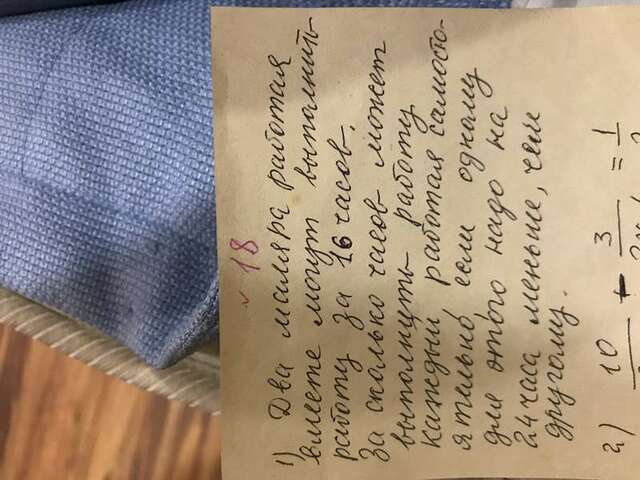 18
1) Два маляра работая
вместе могут выполнить
работу за 16 часов.
За сколько часов может
выполнить работу
каждый, работая самосто-
ятельно, если одному
для этого надо на
24 часа меньше, чем
другому.
2) 10 - 3 = 1